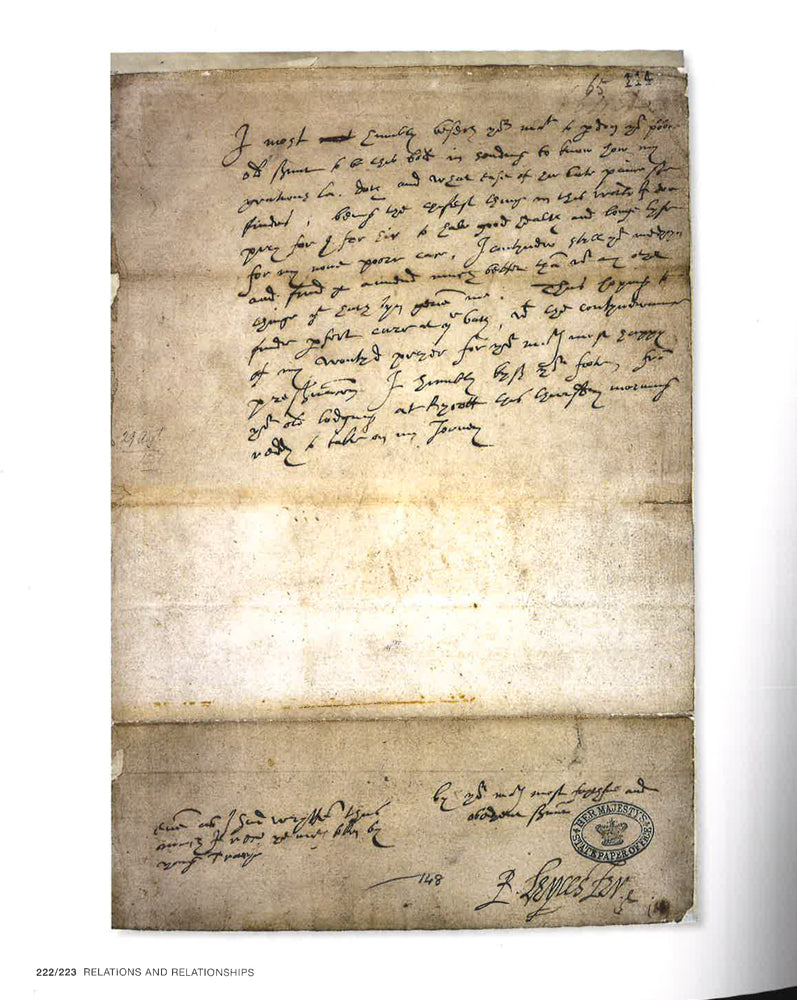 65 224
I most humbly besech yor Matie to pdon yor poore
old srvant to be thus bold in sending to know how my
gratious La. doth and what ease of her late paine she
findes, being the chefest thing in this world I doe
pray for & for hir to have good health and longe lyfe
for my none poore case, I contynew still yor medycyn
and find yt amend much better than wt any other
thinge yt hath byn geven me. Thus hoping to
finde pfect cure at ye bath, wt the contynewance
of my wontyd preyer for yor maty most happy
preservacon I humbly kyss yor foote, from
yor old lodging at Rycott this thursday morning
redy to take on my Jorney
29 Aug
by yor maty most faythfull and
obedyent srvant
even as I had wrytten thus
much I rece yor maty token by
yonge Tracy
148
R. Leycester
HER MAJESTY'S STATE PAPER OFFICE
222/223 RELATIONS AND RELATIONSHIPS